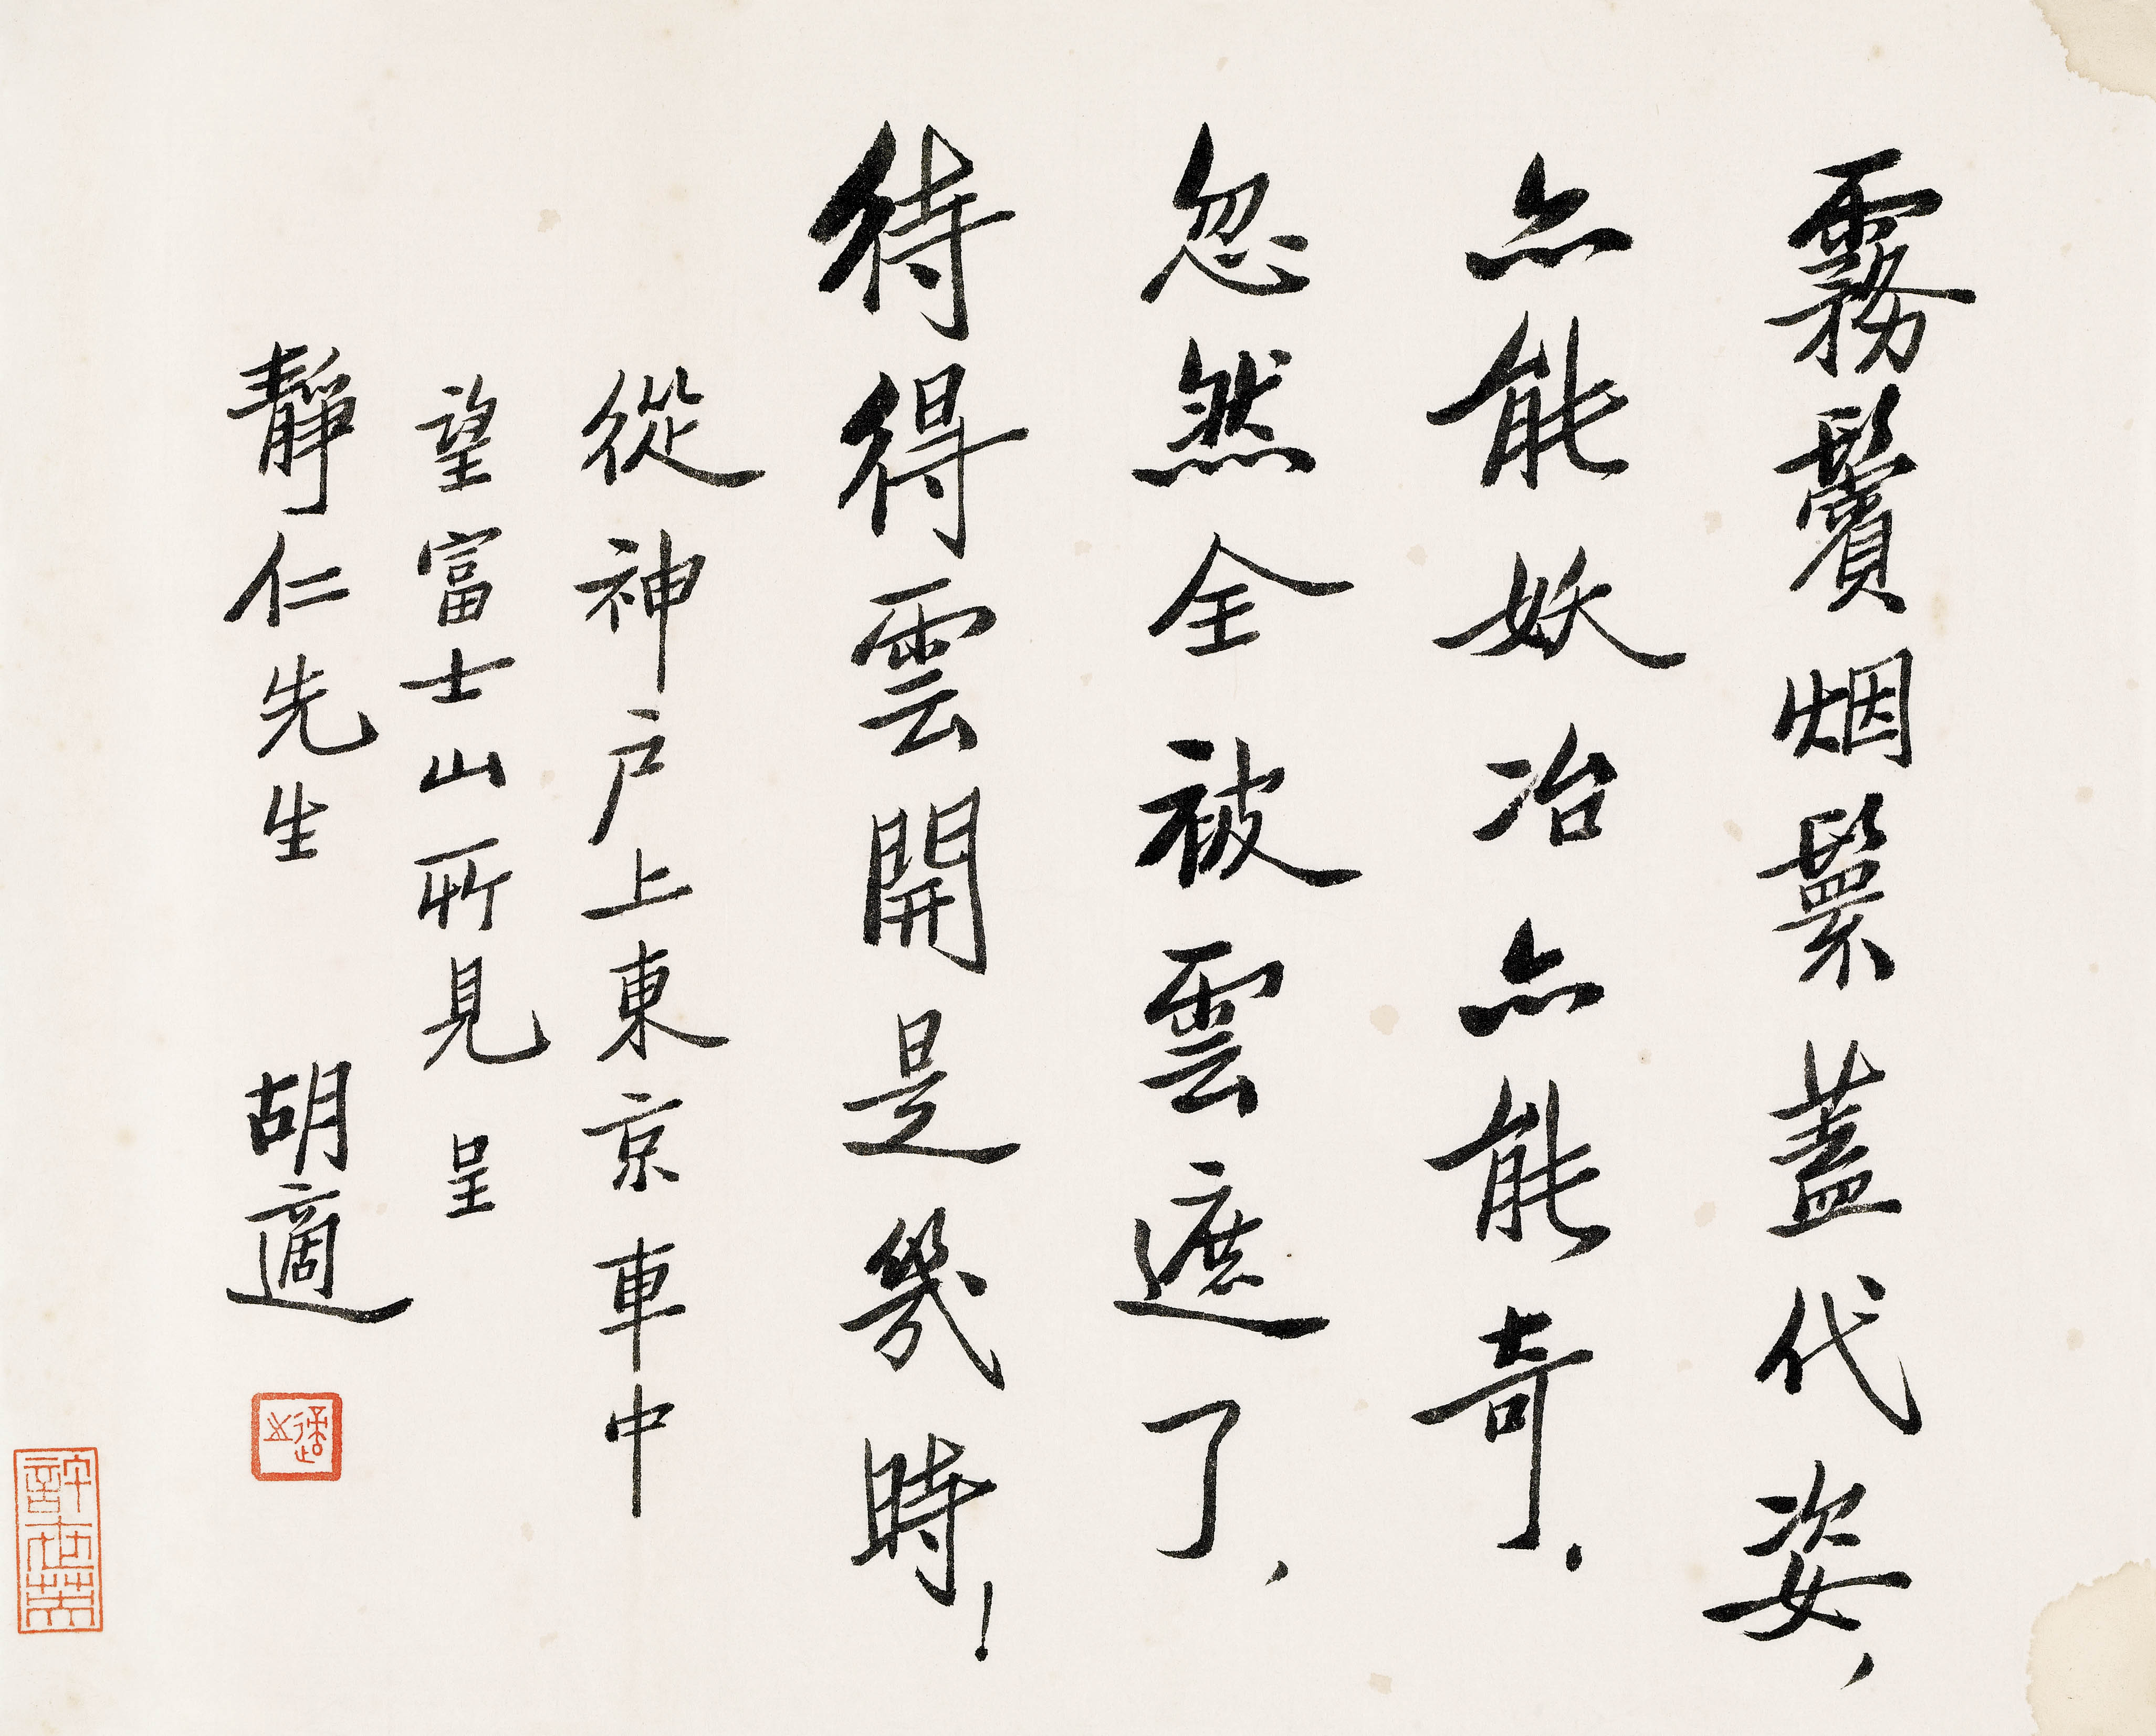 霧鬢烟鬟蓋代姿，
亦能妖冶亦能奇.
忽然全被雲遮了，
待得雲開是幾時！
從神戶上東京車中
望富士山所見 呈
靜仁先生 胡適
適之